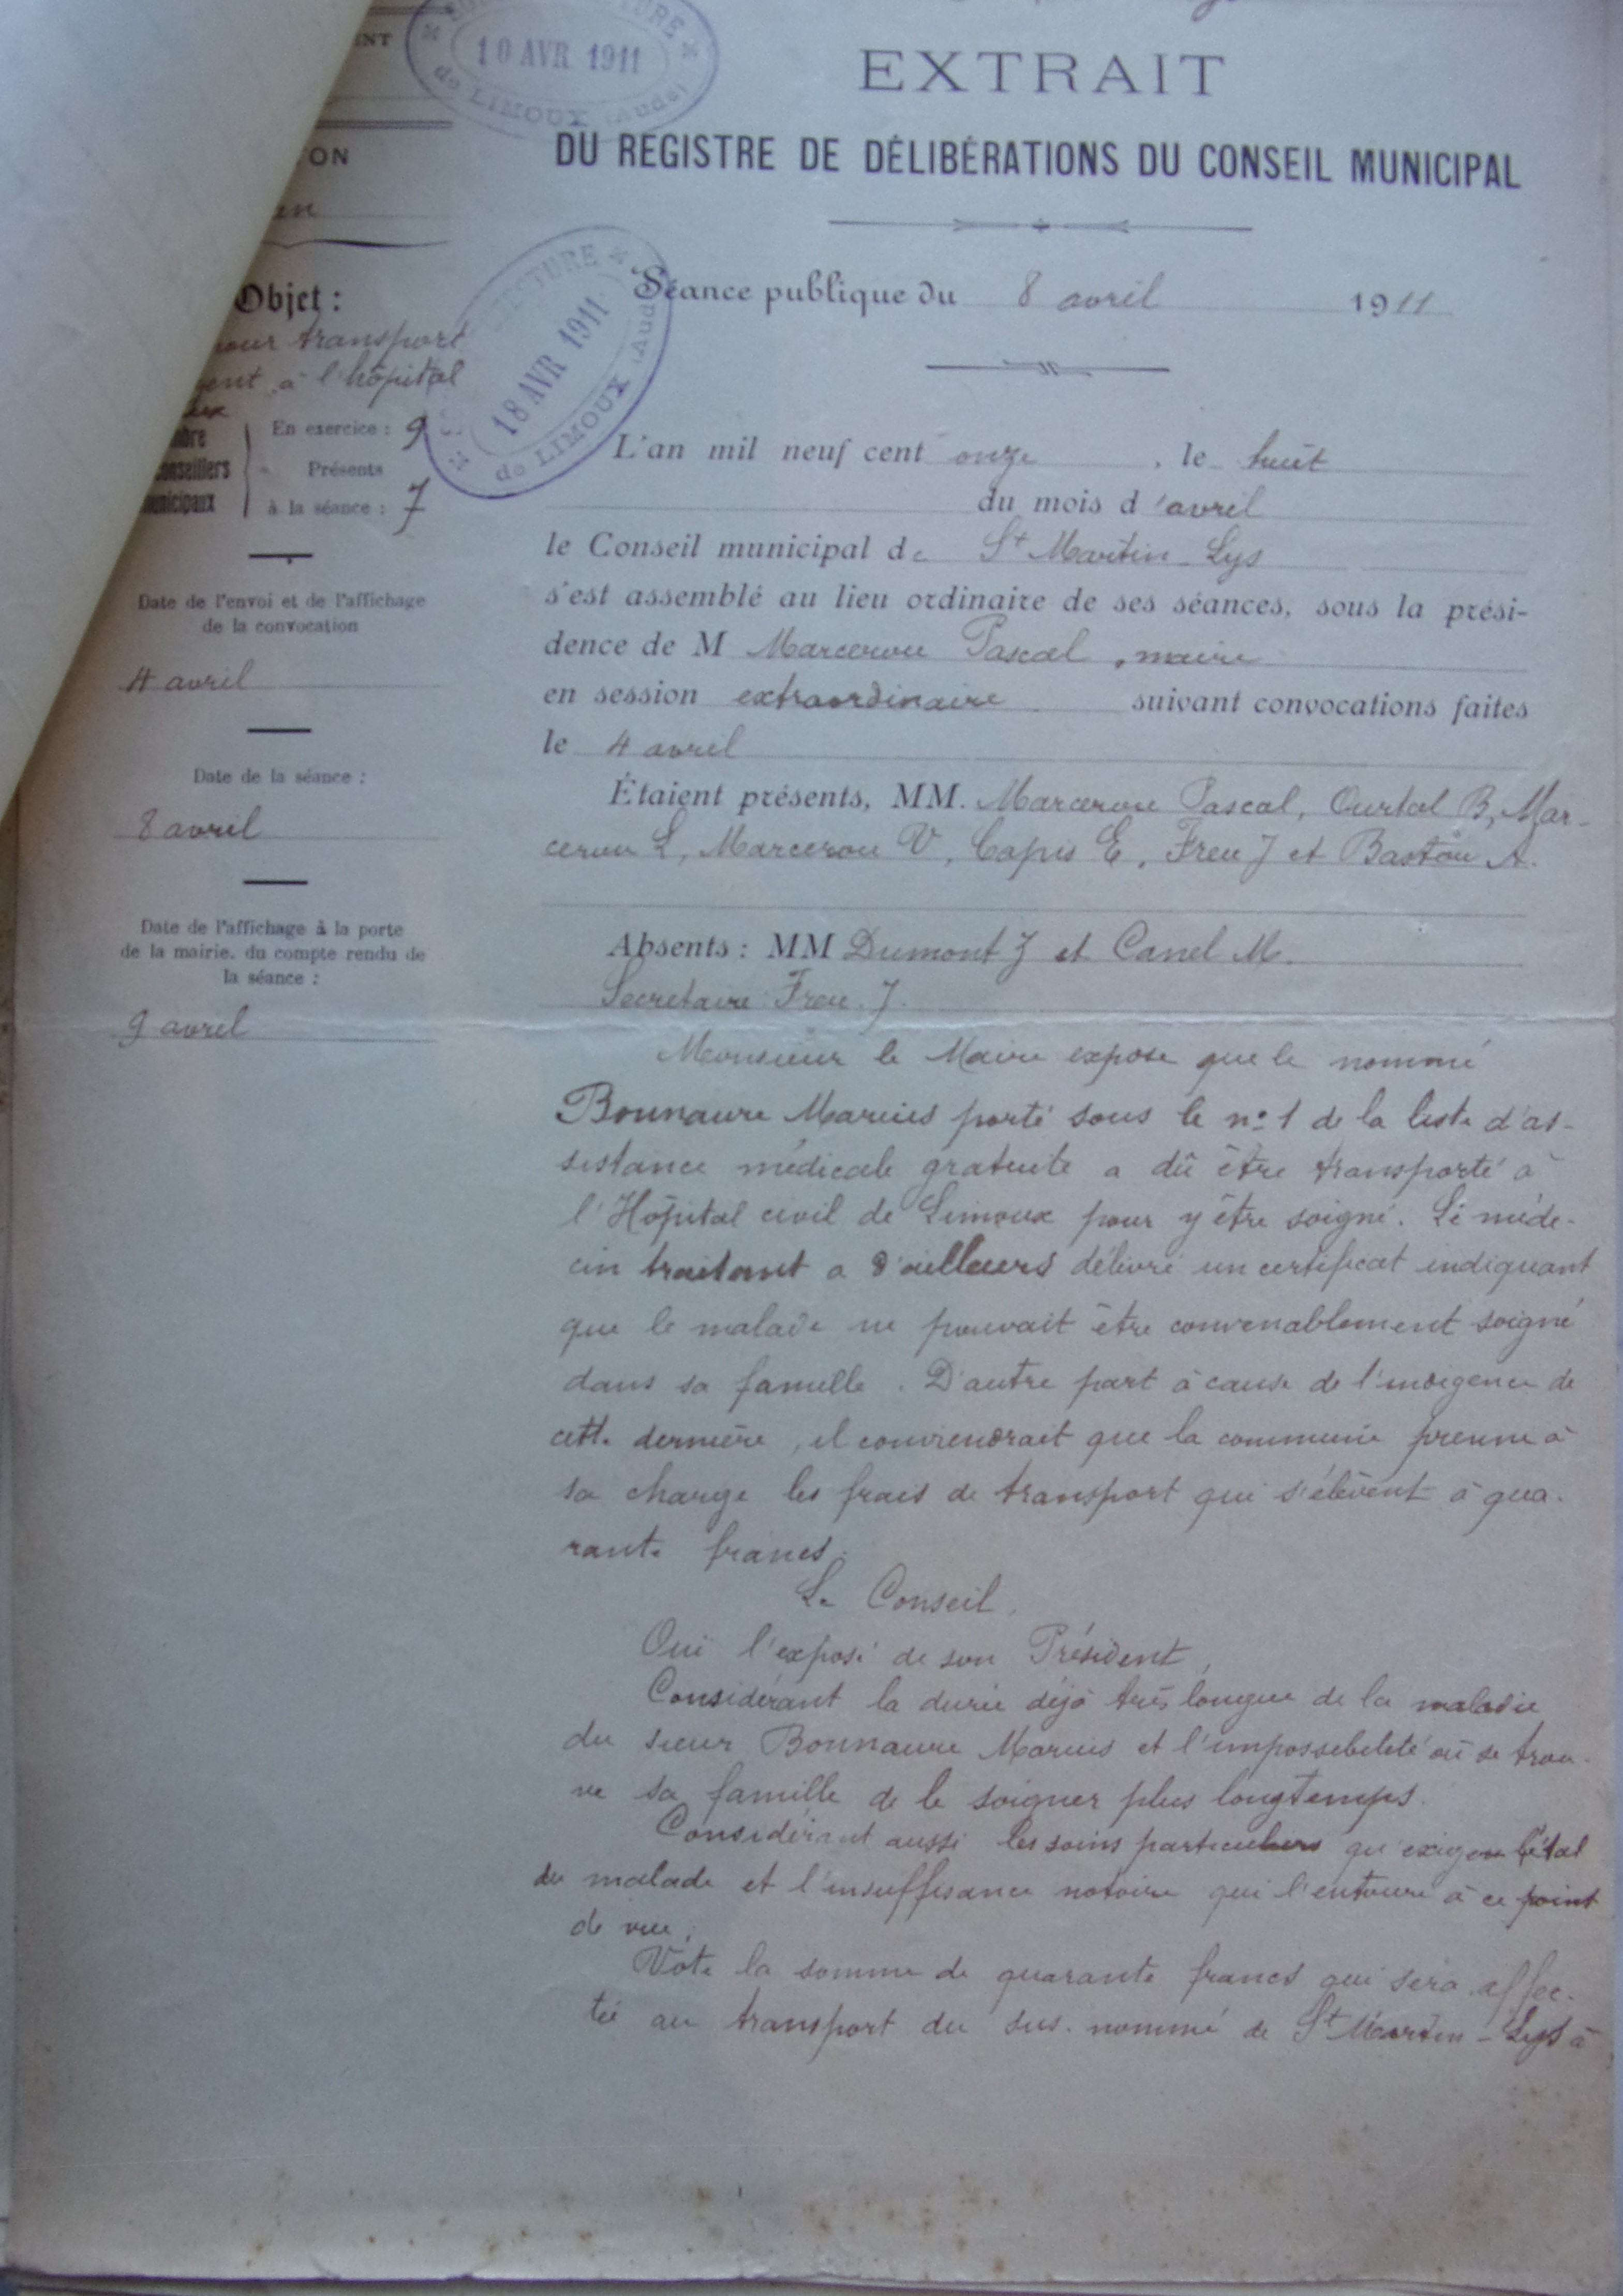 10 AVR 1911
de LIMOUX (Aude)
EXTRAIT
DU REGISTRE DE DÉLIBÉRATIONS DU CONSEIL MUNICIPAL
Séance publique du 8 avril 1911
18 AVR 1911
de LIMOUX (Aude)
Objet :
pour transport
à l'hôpital
En exercice : 9
Présents
à la séance : 7
Date de l'envoi et de l'affichage
de la convocation
4 avril
Date de la séance :
8 avril
Date de l'affichage à la porte
de la mairie, du compte rendu de
la séance :
9 avril
L'an mil neuf cent onze, le huit
du mois d'avril
le Conseil municipal de St Martin-Lys
s'est assemblé au lieu ordinaire de ses séances, sous la prési-
dence de M Marcerou Pascal, maire
en session extraordinaire suivant convocations faites
le 4 avril
Étaient présents, MM. Marcerou Pascal, Ourtal B, Mar-
cerou L, Marcerou V, Capis E, Freu J et Bastou A.
Absents : MM Dumont J et Canel M.
Secretaire Freu. J.
Monsieur le Maire expose que le nommé
Bonnaure Marius porté sous le n° 1 de la liste d'as-
sistance médicale gratuite a dû être transporté à
l'Hôpital civil de Limoux pour y être soigné. Le méde-
cin traitant a d'ailleurs délivré un certificat indiquant
que le malade ne pouvait être convenablement soigné
dans sa famille. D'autre part à cause de l'indigence de
cette dernière, il conviendrait que la commune prenne à
sa charge les frais de transport qui s'élèvent à qua-
rante francs.
Le Conseil,
Oui l'exposé de son Président,
Considérant la durée déjà très longue de la maladie
du sieur Bonnaure Marius et l'impossibilité où se trou-
ve sa famille de le soigner plus longtemps.
Considérant aussi les soins particuliers qu'exige l'état
du malade et l'insuffisance notoire qui l'entoure à ce point
de vue;
Vote la somme de quarante francs qui sera affec-
tée au transport du sus-nommé de St Martin-Lys à